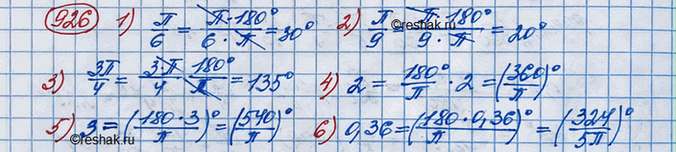 926 1) π/6 = π·180°/6·π = 30° 2) π/9 = π·180°/9·π = 20°
©reshak.ru
3) 3π/4 = 3·π/4 · 180°/π = 135° 4) 2 = 180°/π · 2 = (360/π)°
5) 3 = (180·3/π)° = (540/π)° 6) 0,36 = (180·0,36/π)° = (324/5π)°
©reshak.ru